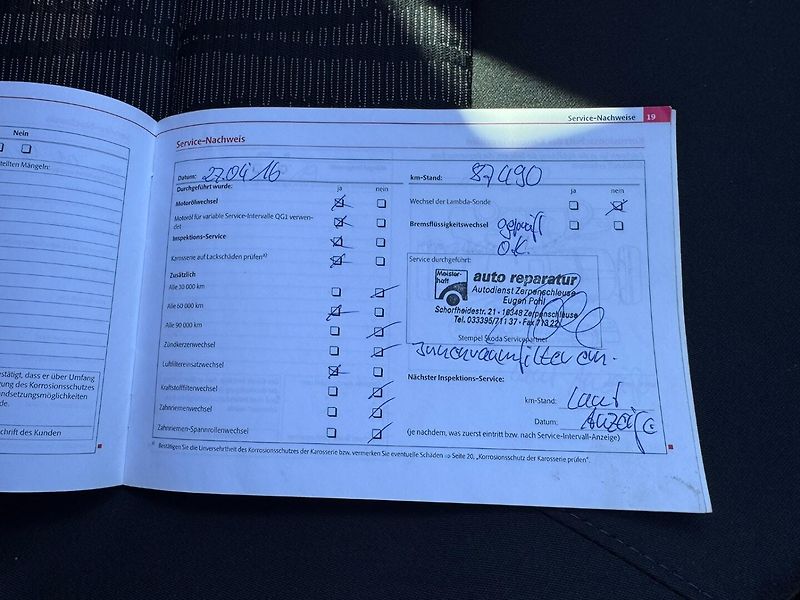 Nein
teilten Mängeln:
estätigt, dass er über Umfang
zung des Korrosionsschutzes
ndsetzungsmöglichkeiten
de.
schrift des Kunden
Service-Nachweise 19
Service-Nachweis
Datum: 27.04.16
Durchgeführt wurde: ja nein
Motorölwechsel
Motoröl für variable Service-Intervalle QG1 verwen-
det
Inspektions-Service
Karosserie auf Lackschäden prüfen a)
Zusätzlich
Alle 30 000 km
Alle 60 000 km
Alle 90 000 km
Zündkerzenwechsel
Luftfiltereinsatzwechsel
Kraftstofffilterwechsel
Zahnriemenwechsel
Zahnriemen-Spannrollenwechsel
km-Stand: 87490
ja nein
Wechsel der Lambda-Sonde
Bremsflüssigkeitswechsel geprüft
O.K.
Service durchgeführt:
Meister-
haft
auto reparatur
Autodienst Zerpenschleuse
Eugen Pohl
Schorfheidestr. 21 - 16348 Zerpenschleuse
Tel. 033395/711 37 - Fax 713 22
Stempel Škoda Servicepartner
Innenraumfilter ern.
Nächster Inspektions-Service:
km-Stand: Laut
Datum: Anzeige
(je nachdem, was zuerst eintritt bzw. nach Service-Intervall-Anzeige)
a) Bestätigen Sie die Unversehrtheit des Korrosionsschutzes der Karosserie bzw. vermerken Sie eventuelle Schäden ⇒ Seite 20, „Korrosionsschutz der Karosserie prüfen“.